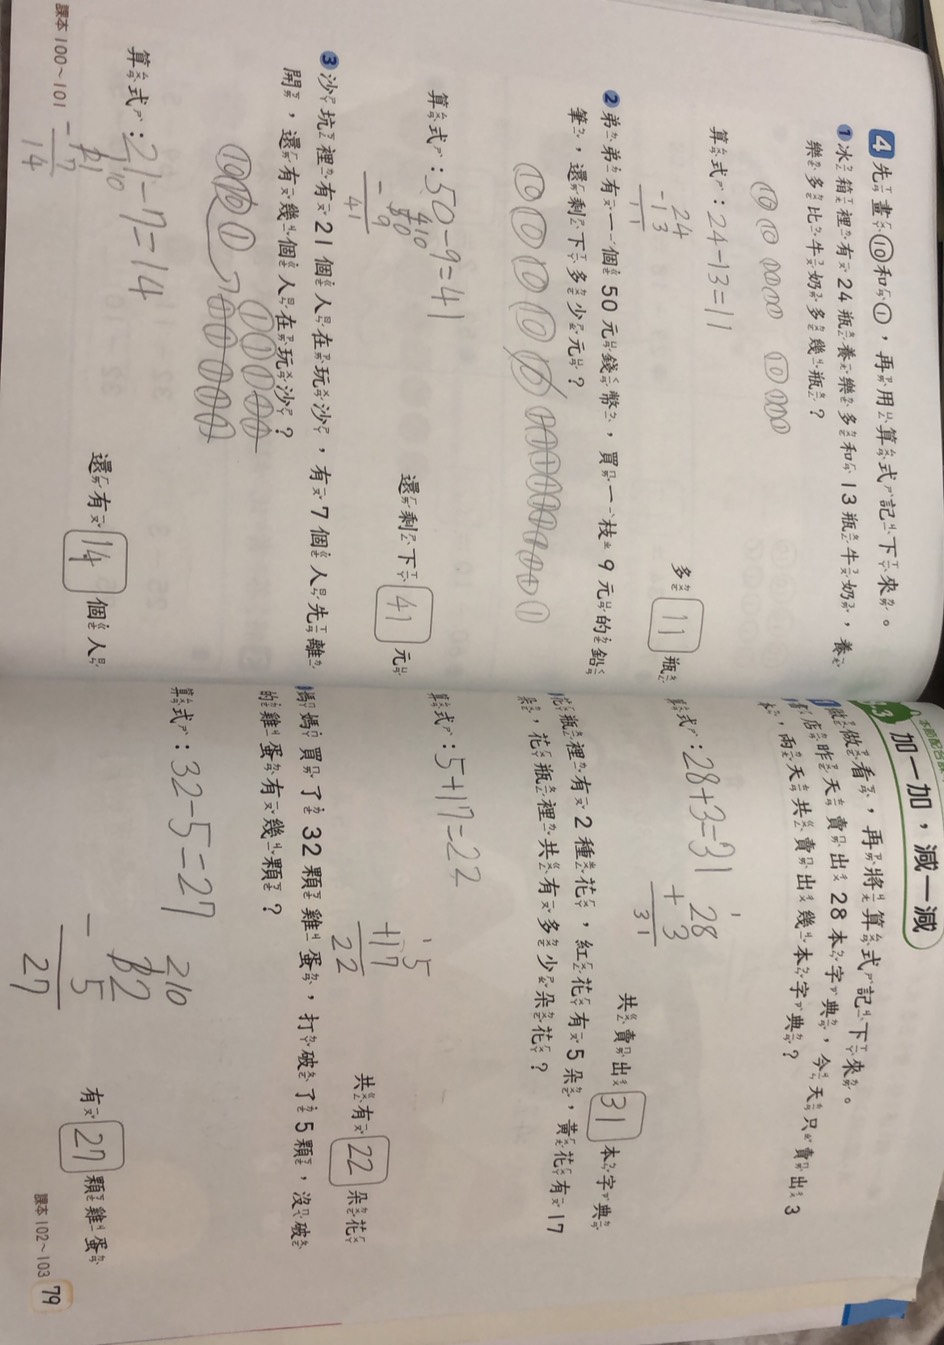 4 先畫⑩和①，再用算式記下來。
1 冰箱裡有24瓶養樂多和13瓶牛奶，養
樂多比牛奶多幾瓶？
⑩⑩①①①① ⑩①①①
算式：24-13=11
24
-13
11
多 11 瓶
2 弟弟有一個50元錢幣，買一枝9元的鉛
筆，還剩下多少元？
算式：50-9=41
410
50
-9
41
還剩下 41 元
3 沙坑裡有21個人在玩沙，有7個人先離
開，還有幾個人在玩沙？
算式：21-7=14
110
21
-7
14
還有 14 個人
課本100～101
3 加一加，減一減
做做看，再將算式記下來。
1 書店昨天賣出28本字典，今天只賣出3
本，兩天共賣出幾本字典？
算式：28+3=31
1
28
+3
31
共賣出 31 本字典
花瓶裡有2種花，紅花有5朵，黃花有17
朵，花瓶裡共有多少朵花？
算式：5+17=22
1
5
+17
22
共有 22 朵花
媽媽買了32顆雞蛋，打破了5顆，沒破
的雞蛋有幾顆？
算式：32-5=27
210
32
-5
27
有 27 顆雞蛋
課本102～103 79